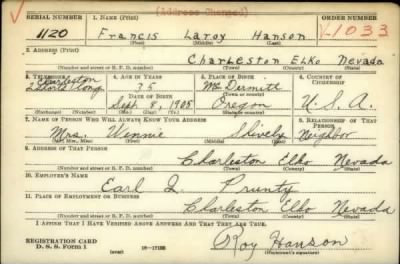 (Address Changed)
SERIAL NUMBER 1. NAME (Print) ORDER NUMBER
1120 Francis Laroy Hanson V-1033
(First) (Middle) (Last)
2. ADDRESS (Print)
Charleston Elko Nevada
(Number and street or R. F. D. number) (Town) (County) (State)
3. TELEPHONE 4. AGE IN YEARS 5. PLACE OF BIRTH 6. COUNTRY OF CITIZENSHIP
Charleston
35 Mc Dermitt
DATE OF BIRTH (Town or county)
Sept 8, 1905 Oregon U. S. A.
(Exchange) (Number) (Mo.) (Day) (Yr.) (State or country)
7. NAME OF PERSON WHO WILL ALWAYS KNOW YOUR ADDRESS 8. RELATIONSHIP OF THAT PERSON
Mrs. Winnie Shively Neighbor
(Mr., Mrs., Miss) (First) (Middle) (Last)
9. ADDRESS OF THAT PERSON
Charleston Elko Nevada
(Number and street or R. F. D. number) (Town) (County) (State)
10. EMPLOYER'S NAME
Earl I. Prunty
11. PLACE OF EMPLOYMENT OR BUSINESS
Charleston Elko Nevada
(Number and street or R. F. D. number) (Town) (County) (State)
I AFFIRM THAT I HAVE VERIFIED ABOVE ANSWERS AND THAT THEY ARE TRUE.
REGISTRATION CARD
D. S. S. Form 1 (over) 16—17105 Roy Hanson
(Registrant's signature)